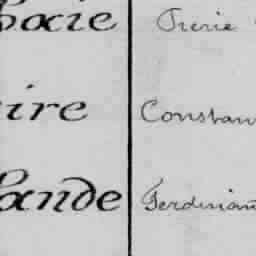 ocie Trerie
ire Constan
ande Ferdinan